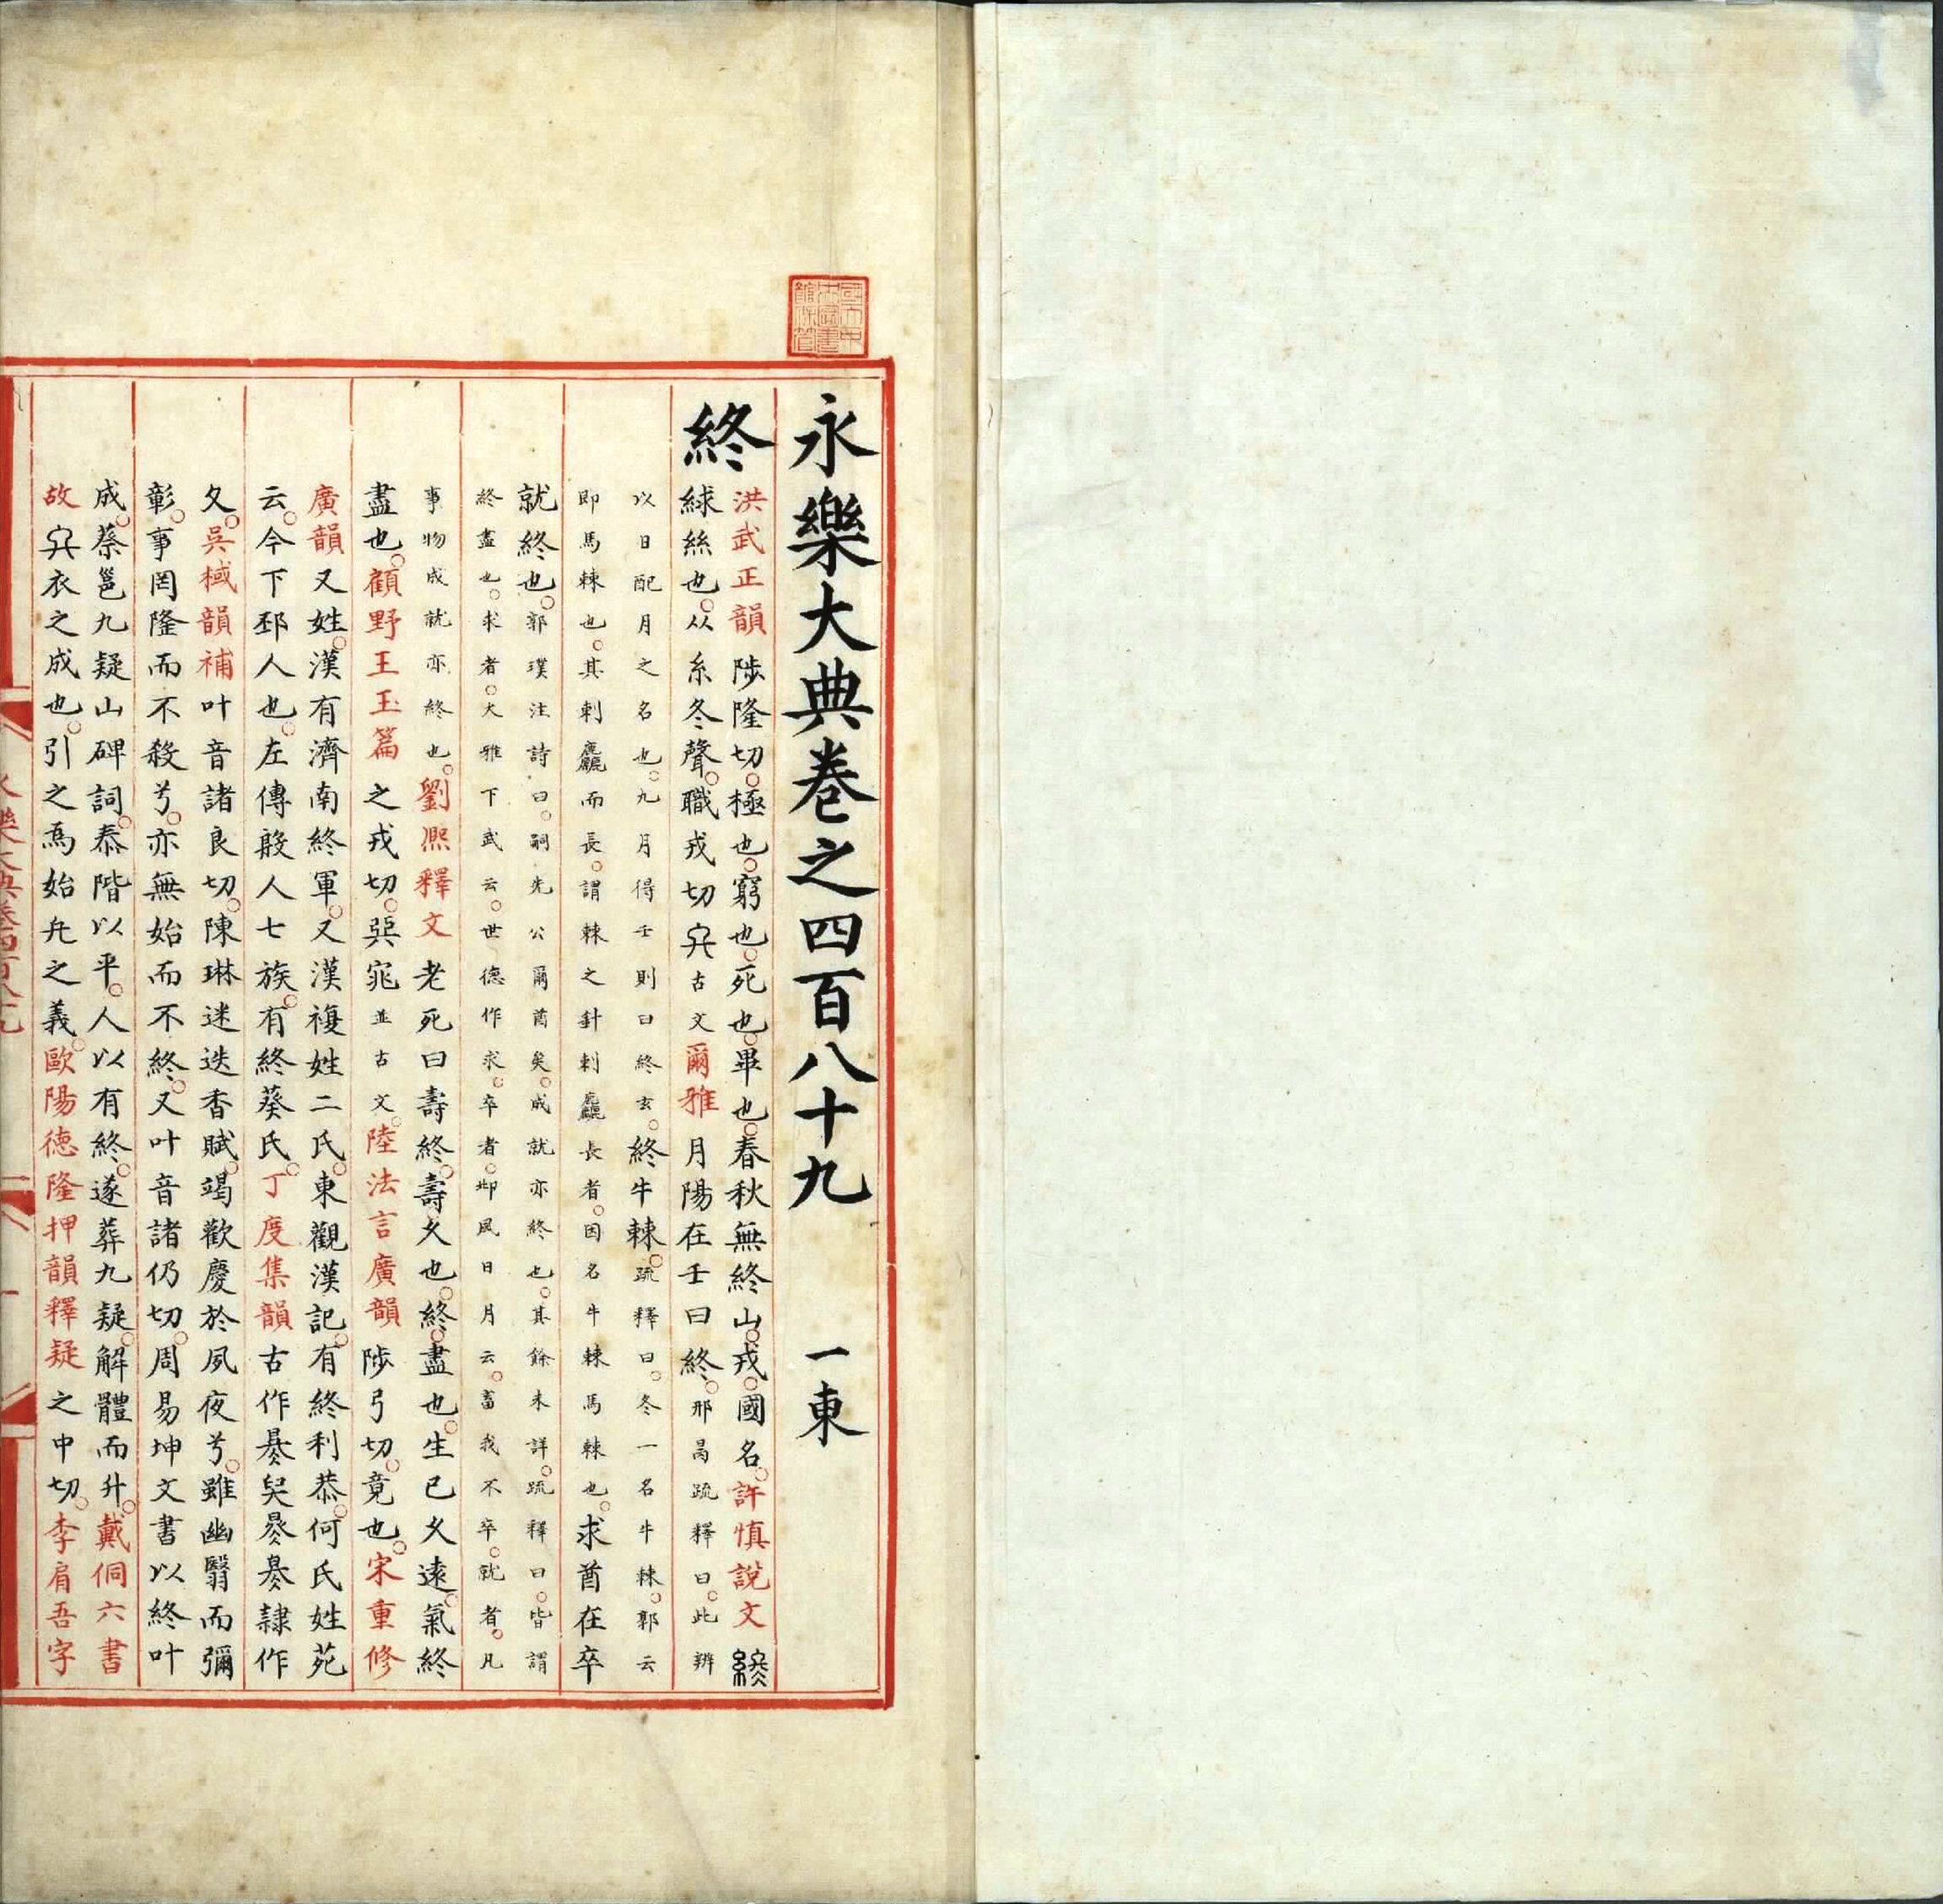 永樂大典卷之四百八十九　一東
終
洪武正韻陟隆切極也窮也死也畢也春秋無終山戎國名許慎說文
絿絲也从糸冬聲職戎切古文爾雅月陽在壬曰終邢昺疏釋曰此辨
以日配月之名也九月得壬則曰終玄終牛棘疏釋曰冬一名牛棘郭云
即馬棘也其刺麤而長謂棘之針刺麤長者因名牛棘馬棘也求酋在卒
就終也郭璞注詩曰嗣先公爾酋矣成就亦終也其餘未詳疏釋曰皆謂
終盡也求者大雅下武云世德作求卒者邶風日月云畜我不卒就者凡
事物成就亦終也劉熙釋文老死曰壽終壽久也終盡也生已久遠氣終
盡也顧野王玉篇之戎切並古文陸法言廣韻陟弓切竟也宋重修
廣韻又姓漢有濟南終軍又漢複姓二氏東觀漢記有終利恭何氏姓苑
云今下邳人也左傳殷人七族有終葵氏丁度集韻古作隸作
夂吳棫韻補叶音諸良切陳琳迷迭香賦竭歡慶於夙夜兮雖幽翳而彌
彰事罔隆而不殺兮亦無始而不終又叶音諸仍切周易坤文書以終叶
成蔡邕九疑山碑詞泰階以平人以有終遂葬九疑解體而升戴侗六書
故衣之成也引之為始之義歐陽德隆押韻釋疑之中切李肩吾字
永樂大典卷四百八十九
一
國立中央圖書館保管